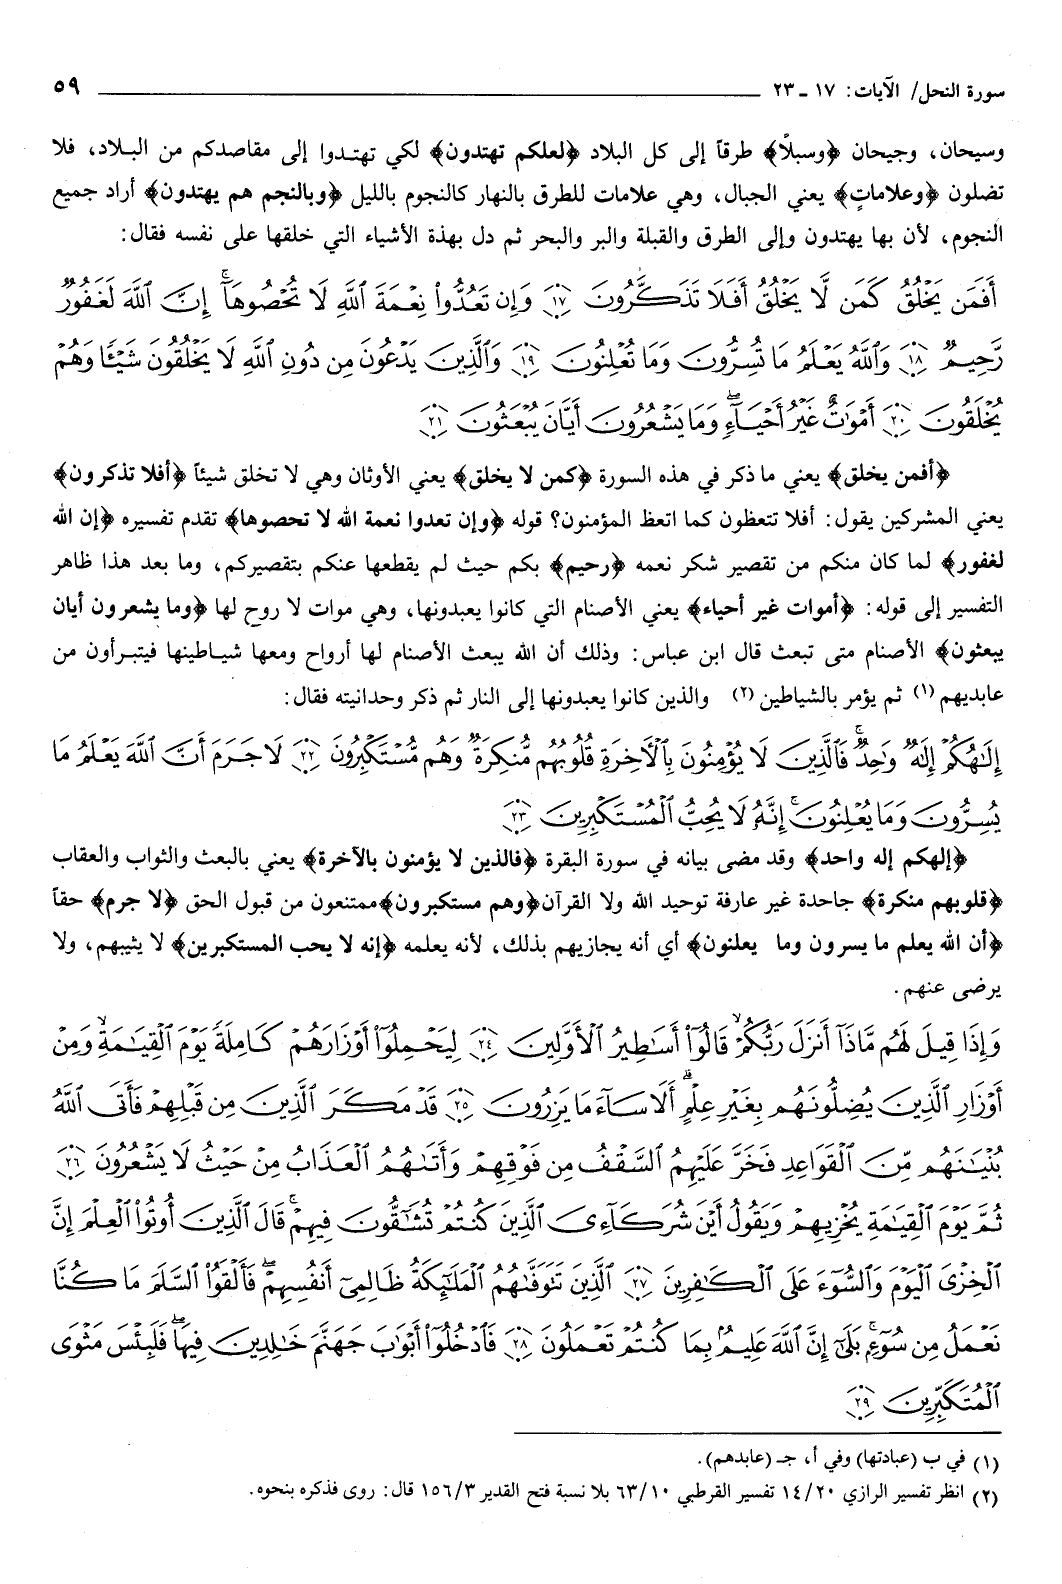 سورة النحل/ الآيات: ١٧ ـ ٢٣ ٥٩
وسيحان، وجيحان ﴿وسبلاً﴾ طرقاً إلى كل البلاد ﴿لعلكم تهتدون﴾ لكي تهتدوا إلى مقاصدكم من البلاد، فلا
تضلون ﴿وعلاماتٍ﴾ يعني الجبال، وهي علامات للطرق بالنهار كالنجوم بالليل ﴿وبالنجم هم يهتدون﴾ أراد جميع
النجوم، لأن بها يهتدون وإلى الطرق والقبلة والبر والبحر ثم دل بهذة الأشياء التي خلقها على نفسه فقال:
أَفَمَن يَخْلُقُ كَمَن لَّا يَخْلُقُ أَفَلَا تَذَكَّرُونَ ١٧ وَإِن تَعُدُّوا۟ نِعْمَةَ ٱللَّهِ لَا تُحْصُوهَآ إِنَّ ٱللَّهَ لَغَفُورٌ
رَّحِيمٌ ١٨ وَٱللَّهُ يَعْلَمُ مَا تُسِرُّونَ وَمَا تُعْلِنُونَ ١٩ وَٱلَّذِينَ يَدْعُونَ مِن دُونِ ٱللَّهِ لَا يَخْلُقُونَ شَيْـًٔا وَهُمْ
يُخْلَقُونَ ٢٠ أَمْوَٰتٌ غَيْرُ أَحْيَآءٍ وَمَا يَشْعُرُونَ أَيَّانَ يُبْعَثُونَ ٢١
﴿أفمن يخلق﴾ يعني ما ذكر في هذه السورة ﴿كمن لا يخلق﴾ يعني الأوثان وهي لا تخلق شيئاً ﴿أفلا تذكرون﴾
يعني المشركين يقول: أفلا تتعظون كما اتعظ المؤمنون؟ قوله ﴿وإن تعدوا نعمة الله لا تحصوها﴾ تقدم تفسيره ﴿إن الله
لغفور﴾ لما كان منكم من تقصير شكر نعمه ﴿رحيم﴾ بكم حيث لم يقطعها عنكم بتقصيركم، وما بعد هذا ظاهر
التفسير إلى قوله: ﴿أموات غير أحياء﴾ يعني الأصنام التي كانوا يعبدونها، وهي موات لا روح لها ﴿وما يشعرون أيان
يبعثون﴾ الأصنام متى تبعث قال ابن عباس: وذلك أن الله يبعث الأصنام لها أرواح ومعها شياطينها فيتبرأون من
عابديهم (١) ثم يؤمر بالشياطين (٢) والذين كانوا يعبدونها إلى النار ثم ذكر وحدانيته فقال:
إِلَٰهُكُمْ إِلَٰهٌ وَٰحِدٌ فَٱلَّذِينَ لَا يُؤْمِنُونَ بِٱلْأَخِرَةِ قُلُوبُهُم مُّنكِرَةٌ وَهُم مُّسْتَكْبِرُونَ ٢٢ لَا جَرَمَ أَنَّ ٱللَّهَ يَعْلَمُ مَا
يُسِرُّونَ وَمَا يُعْلِنُونَ إِنَّهُۥ لَا يُحِبُّ ٱلْمُسْتَكْبِرِينَ ٢٣
﴿إلهكم إله واحد﴾ وقد مضى بيانه في سورة البقرة ﴿فالذين لا يؤمنون بالآخرة﴾ يعني بالبعث والثواب والعقاب
﴿قلوبهم منكرة﴾ جاحدة غير عارفة توحيد الله ولا القرآن﴿وهم مستكبرون﴾ممتنعون من قبول الحق ﴿لا جرم﴾ حقاً
﴿أن الله يعلم ما يسرون وما يعلنون﴾ أي أنه يجازيهم بذلك، لأنه يعلمه ﴿إنه لا يحب المستكبرين﴾ لا يثيبهم، ولا
يرضى عنهم.
وَإِذَا قِيلَ لَهُم مَّاذَآ أَنزَلَ رَبُّكُمْ قَالُوٓا۟ أَسَٰطِيرُ ٱلْأَوَّلِينَ ٢٤ لِيَحْمِلُوٓا۟ أَوْزَارَهُمْ كَامِلَةً يَوْمَ ٱلْقِيَٰمَةِ وَمِنْ
أَوْزَارِ ٱلَّذِينَ يُضِلُّونَهُم بِغَيْرِ عِلْمٍ أَلَا سَآءَ مَا يَزِرُونَ ٢٥ قَدْ مَكَرَ ٱلَّذِينَ مِن قَبْلِهِمْ فَأَتَى ٱللَّهُ
بُنْيَٰنَهُم مِّنَ ٱلْقَوَاعِدِ فَخَرَّ عَلَيْهِمُ ٱلسَّقْفُ مِن فَوْقِهِمْ وَأَتَىٰهُمُ ٱلْعَذَابُ مِنْ حَيْثُ لَا يَشْعُرُونَ ٢٦
ثُمَّ يَوْمَ ٱلْقِيَٰمَةِ يُخْزِيهِمْ وَيَقُولُ أَيْنَ شُرَكَآءِىَ ٱلَّذِينَ كُنتُمْ تُشَٰٓقُّونَ فِيهِمْ قَالَ ٱلَّذِينَ أُوتُوا۟ ٱلْعِلْمَ إِنَّ
ٱلْخِزْىَ ٱلْيَوْمَ وَٱلسُّوٓءَ عَلَى ٱلْكَٰفِرِينَ ٢٧ ٱلَّذِينَ تَتَوَفَّىٰهُمُ ٱلْمَلَٰٓئِكَةُ ظَالِمِىٓ أَنفُسِهِمْ فَأَلْقَوُا۟ ٱلسَّلَمَ مَا كُنَّا
نَعْمَلُ مِن سُوٓءٍ بَلَىٰٓ إِنَّ ٱللَّهَ عَلِيمٌۢ بِمَا كُنتُمْ تَعْمَلُونَ ٢٨ فَٱدْخُلُوٓا۟ أَبْوَٰبَ جَهَنَّمَ خَٰلِدِينَ فِيهَا فَلَبِئْسَ مَثْوَى
ٱلْمُتَكَبِّرِينَ ٢٩
(١) في ب (عبادتها) وفي أ، جـ (عابدهم).
(٢) انظر تفسير الرازي ١٤/٢٠ تفسير القرطبي ٦٣/١٠ بلا نسبة فتح القدير ١٥٦/٣ قال: روى فذكره بنحوه.